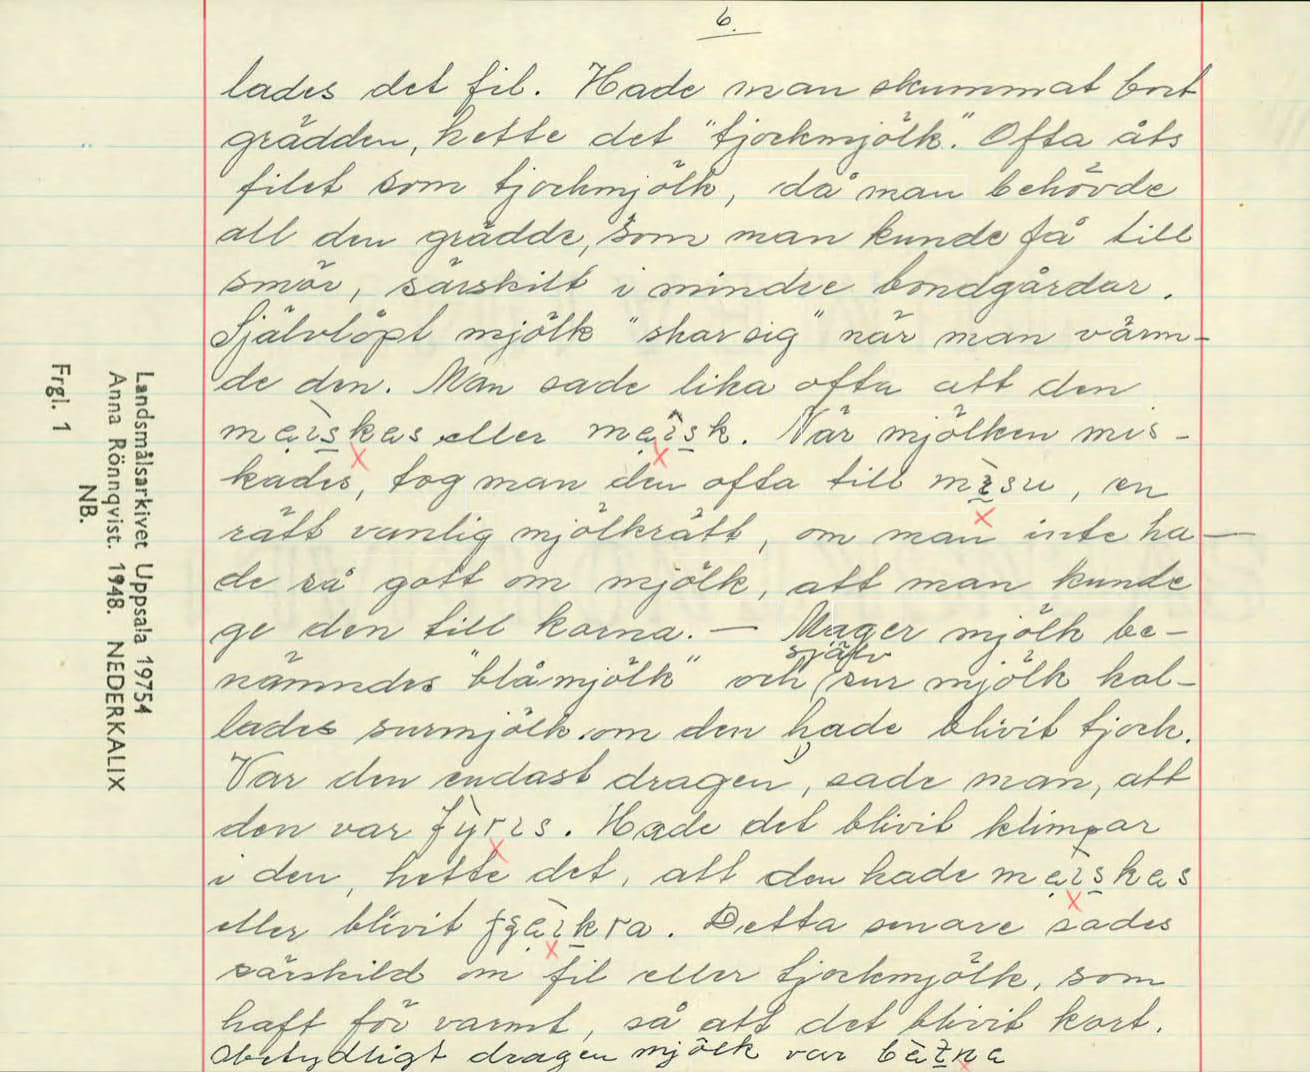 6.
lades det fil. Hade man skummat bort
grädden, hette det "tjockmjölk". Ofta åts
filet som tjockmjölk, då man behövde
all den grädde, som man kunde få till
smör, särskilt i mindre bondgårdar.
Självlöpt mjölk "skar sig" när man värm-
de den. Man sade lika ofta att den
eller . När mjölken mis-
kades, tog man den ofta till mìsu, en
rätt vanlig mjölkrätt, om man inte ha-
de så gott om mjölk, att man kunde
ge den till korna. — Mager mjölk be-
nämndes "blåmjölk" och själv sur mjölk kal-
lades surmjölk om den hade blivit tjock.
Var den endast dragen, sade man, att
den var . Hade det blivit klimpar
i den, hette det, att den hade
eller blivit . Detta senare sades
särskild om fil eller tjockmjölk, som
haft för varmt, så att det blivit kort.
Obetydligt dragen mjölk var
Landsmålsarkivet Uppsala 19754
Anna Rönnqvist. 1948. NEDERKALIX
NB.
Frgl. 1